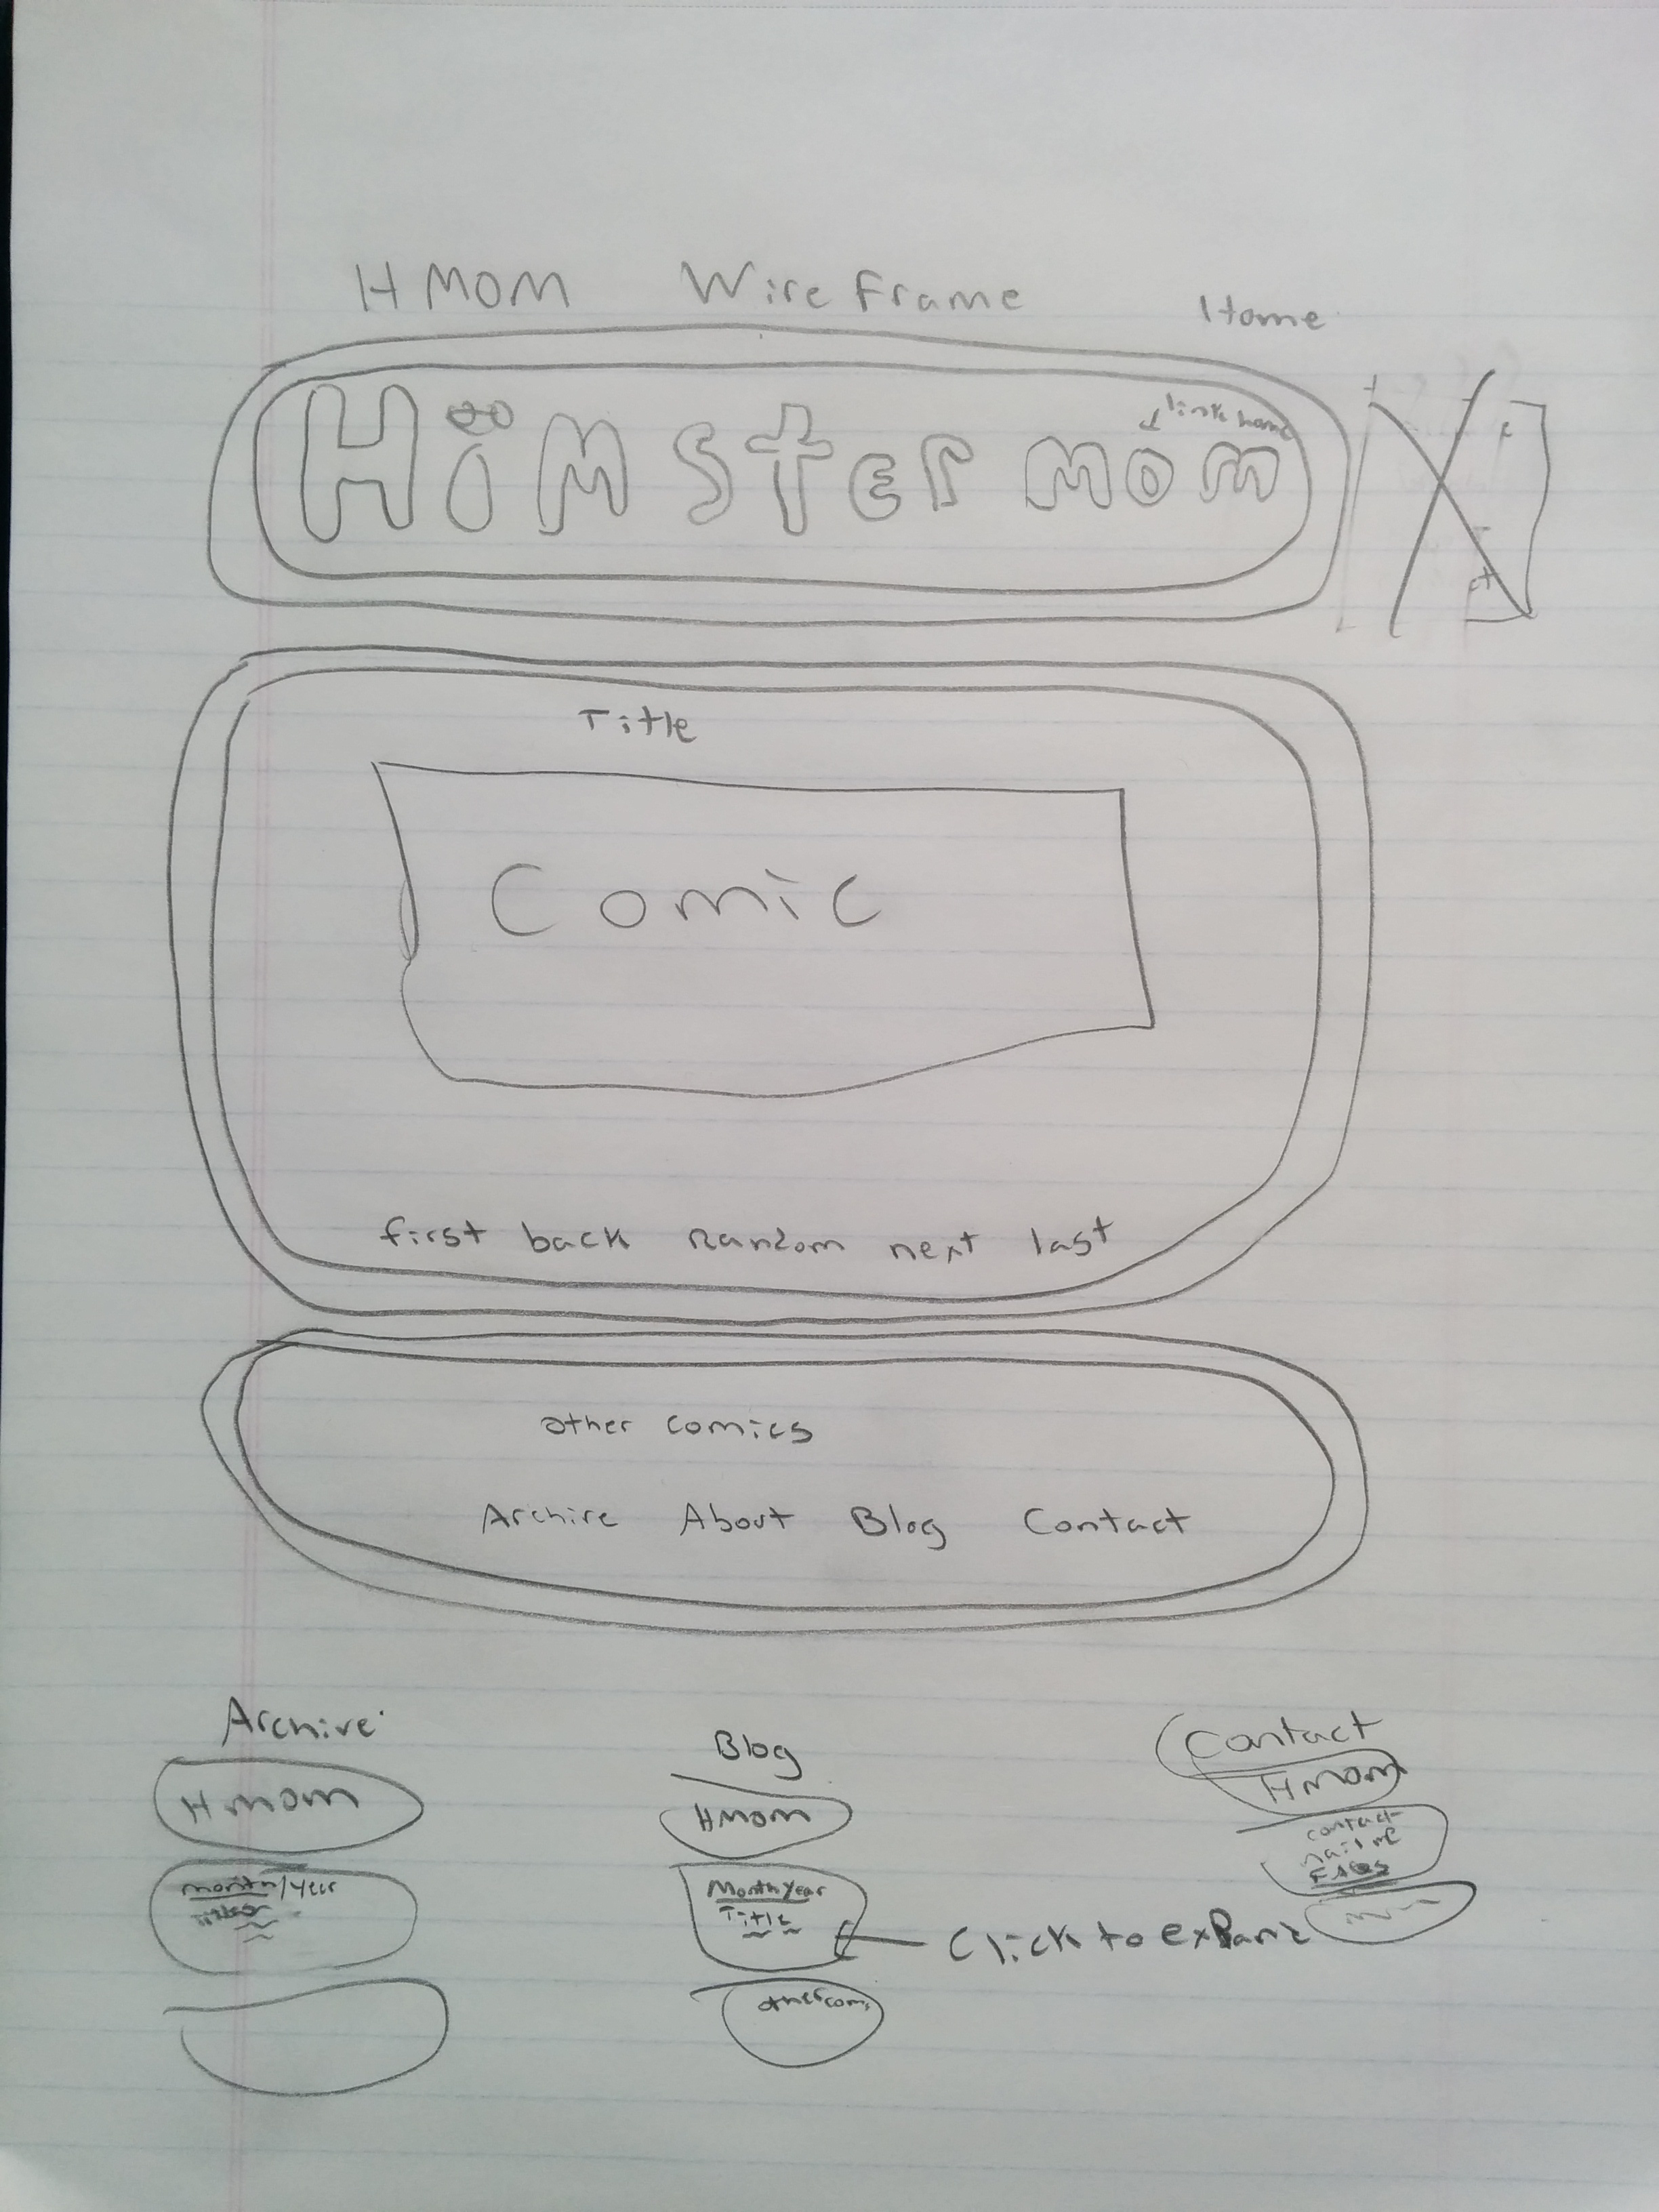 HMOM Wire Frame
Home
Himster mom
link home
Title
Comic
first back Random next last
other comics
Archive About Blog Contact
Archive
Hmom
month/year
Blog
HMOM
Month Year
Title
Click to expand
other com
Contact
HMOM
contact
FAQs